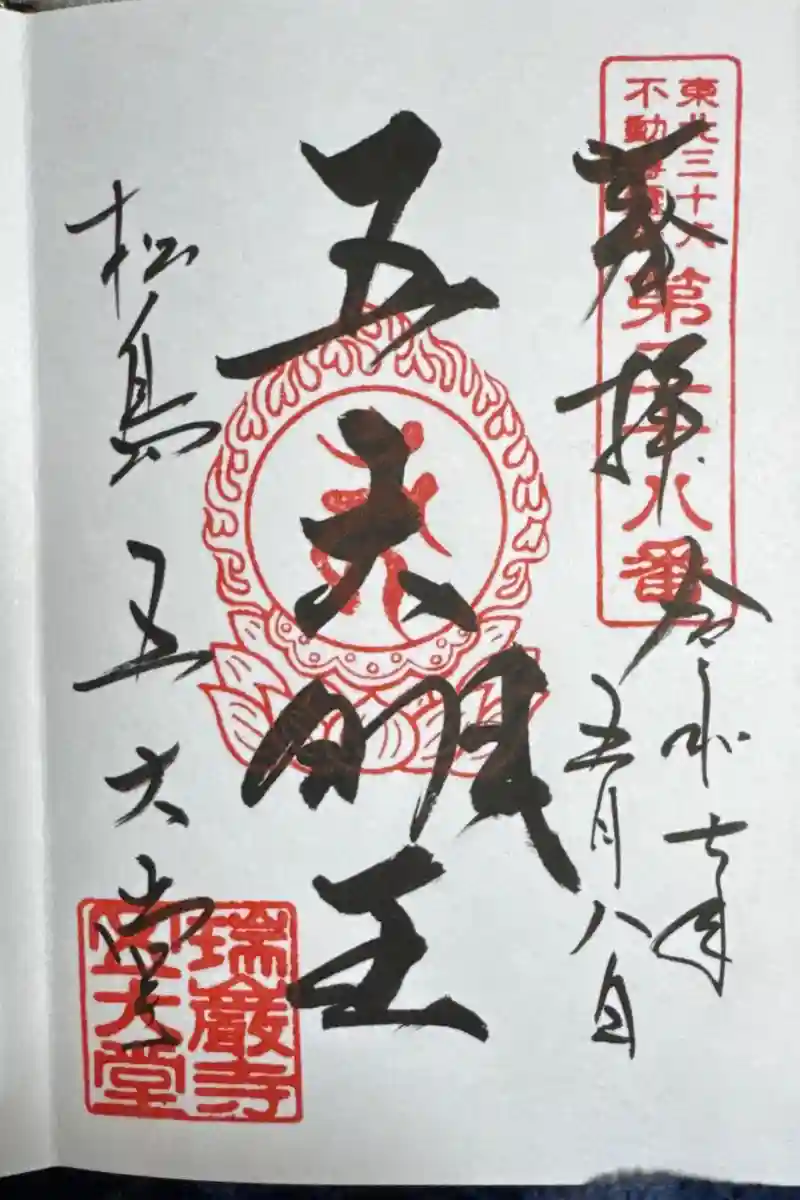 東北三十六
不動尊霊場
第二十八番
奉拝
令和七年
五月八日
五大明王
松島 五大堂
瑞巌寺
五大堂